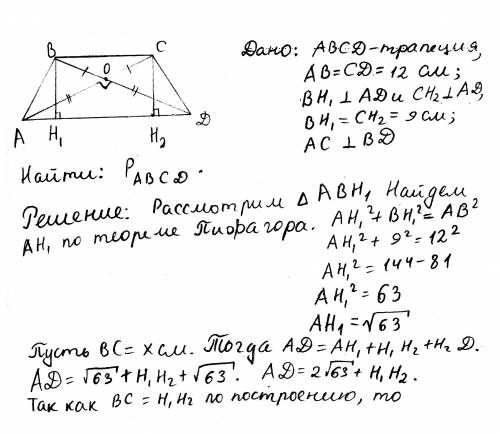 B C
O
A H₁ H₂ D
Дано: ABCD-трапеция,
AB=CD=12 см;
BH₁ ⊥ AD и CH₂ ⊥ AD,
BH₁ = CH₂ = 9 см;
AC ⊥ BD
Найти: P_ABCD.
Решение: Рассмотрим △ ABH₁ Найдем
AH₁ по теореме Пифагора. AH₁² + BH₁² = AB²
AH₁² + 9² = 12²
AH₁² = 144-81
AH₁² = 63
AH₁ = √63
Пусть BC = x см. Тогда AD = AH₁ + H₁H₂ + H₂D.
AD = √63 + H₁H₂ + √63. AD = 2√63 + H₁H₂.
Так как BC = H₁H₂ по построению, то